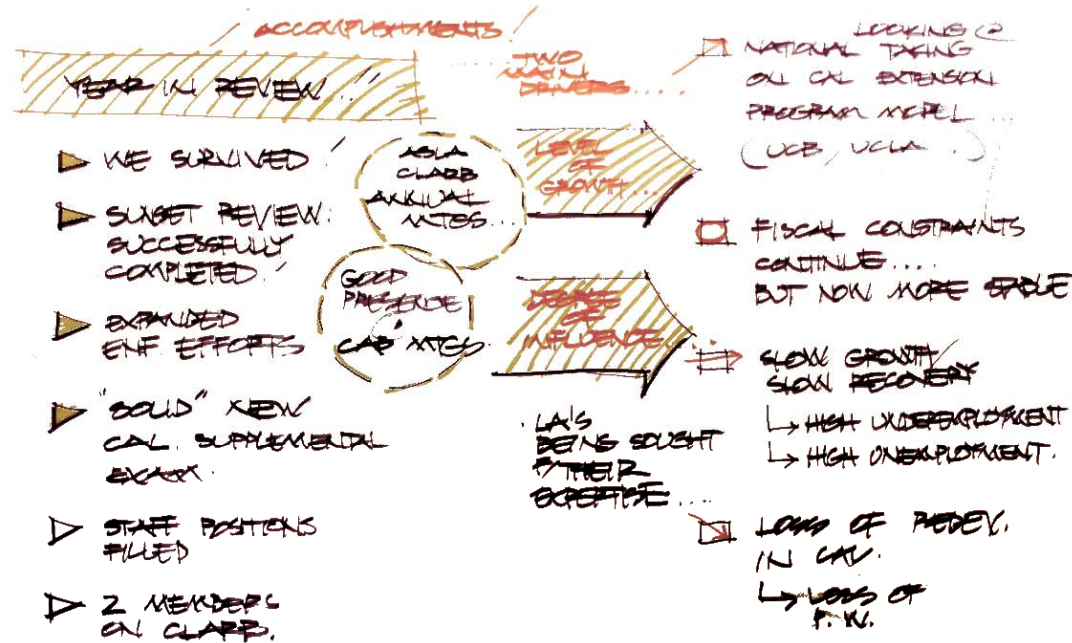 ACCOMPLISHMENTS!
YEAR IN REVIEW!!
WE SURVIVED!
SUNSET REVIEW.
SUCCESSFULLY
COMPLETED!
EXPANDED
ENF. EFFORTS
"SOLID" NEW
CAL. SUPPLEMENTAL
EXAM.
STAFF POSITIONS
FILLED
2 MEMBERS
ON CLARB.
ASLA
CLARB
ANNUAL
MTGS...
GOOD
PRESENCE
@
CAB MTGS.
TWO
MAIN
DRIVERS.....
LEVEL
OF
GROWTH...
DEGREE
OF
INFLUENCE...
LA'S
BEING SOUGHT
F/THEIR
EXPERTISE....
LOOKING @
NATIONAL TAKING
ON CAL EXTENSION
PROGRAM MODEL...
(UCB/UCLA.)
FISCAL CONSTRAINTS
CONTINUE....
BUT NOW MORE STABLE
SLOW GROWTH/
SLOW RECOVERY
HIGH UNDEREMPLOYMENT
HIGH UNEMPLOYMENT.
LOSS OF REDEV.
IN CAL.
LOSS OF
P.W.